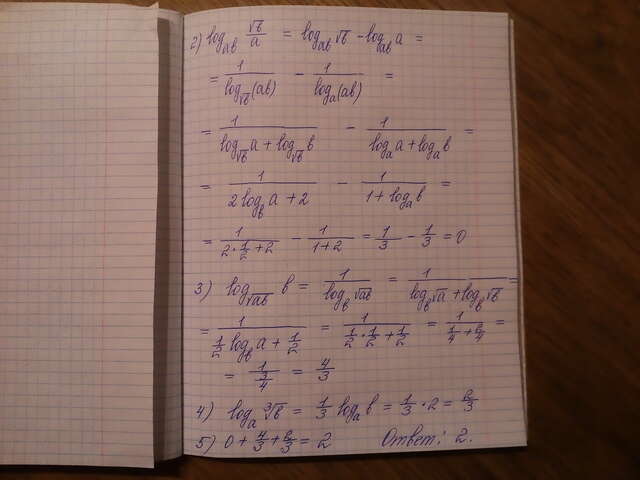 2) log_{ab} \frac{\sqrt{b}}{a} = log_{ab} \sqrt{b} - log_{ab} a =
= \frac{1}{log_{\sqrt{b}} (ab)} - \frac{1}{log_a (ab)} =
= \frac{1}{log_{\sqrt{b}} a + log_{\sqrt{b}} b} - \frac{1}{log_a a + log_a b} =
= \frac{1}{2 log_b a + 2} - \frac{1}{1 + log_a b} =
= \frac{1}{2 \cdot \frac{1}{2} + 2} - \frac{1}{1+2} = \frac{1}{3} - \frac{1}{3} = 0
3) log_{\sqrt{ab}} b = \frac{1}{log_b \sqrt{ab}} = \frac{1}{log_b \sqrt{a} + log_b \sqrt{b}} =
= \frac{1}{\frac{1}{2} log_b a + \frac{1}{2}} = \frac{1}{\frac{1}{2} \cdot \frac{1}{2} + \frac{1}{2}} = \frac{1}{\frac{1}{4} + \frac{2}{4}} =
= \frac{1}{\frac{3}{4}} = \frac{4}{3}
4) log_a \sqrt[3]{b} = \frac{1}{3} log_a b = \frac{1}{3} \cdot 2 = \frac{2}{3}
5) 0 + \frac{4}{3} + \frac{2}{3} = 2 Ответ: 2.